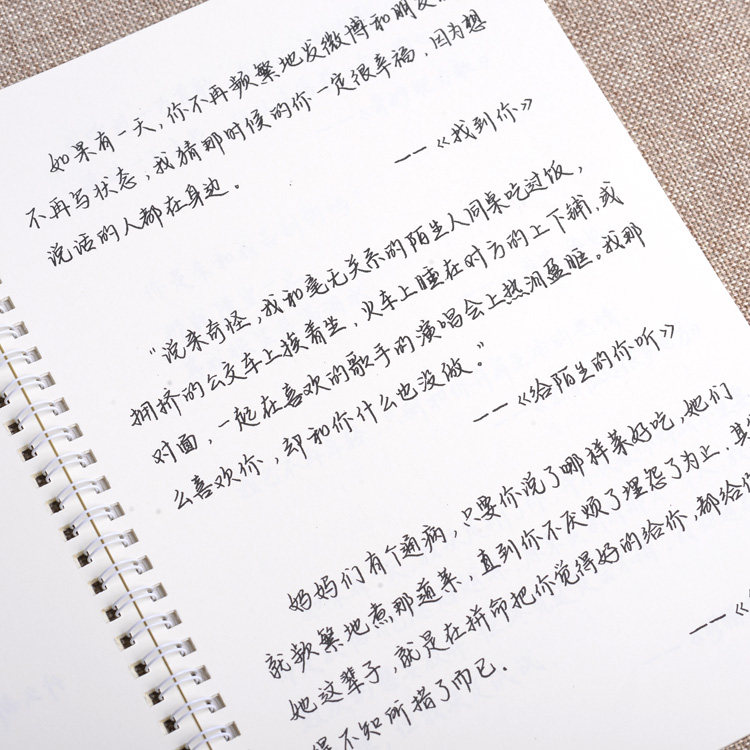 如果有一天，你不再频繁地发微博和朋友
不再写状态，我猜那时候的你一定很幸福，因为想
说话的人都在身边。
——《找到你》
“说来奇怪，我和毫无关系的陌生人同桌吃过饭，
拥挤的公交车上挨着坐，火车上睡在对方的上下铺，或
对面，一起在喜欢的歌手的演唱会上热泪盈眶。我那
么喜欢你，却和你什么也没做。”
——《给陌生的你听》
妈妈们有个通病，只要你说了哪样菜好吃，她们
就频繁地煮那道菜，直到你不厌烦了埋怨了为止。其
她这辈子，就是在拼命把你觉得好的给你，都给你
得不知所措了而已。
——《